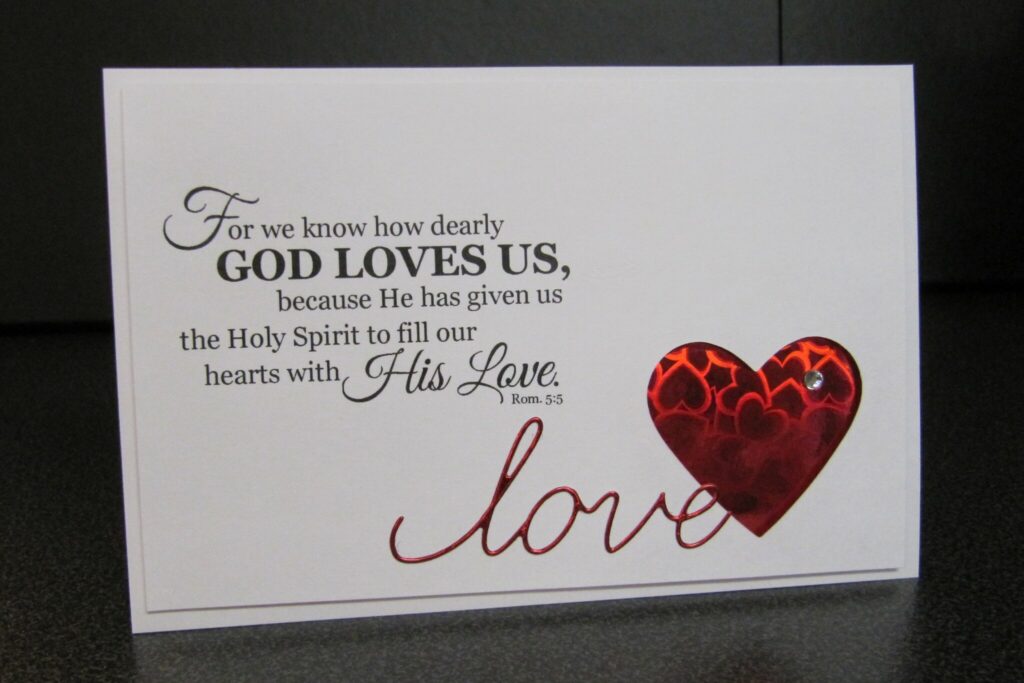 For we know how dearly
GOD LOVES US,
because He has given us
the Holy Spirit to fill our
hearts with His Love.
Rom. 5:5
love